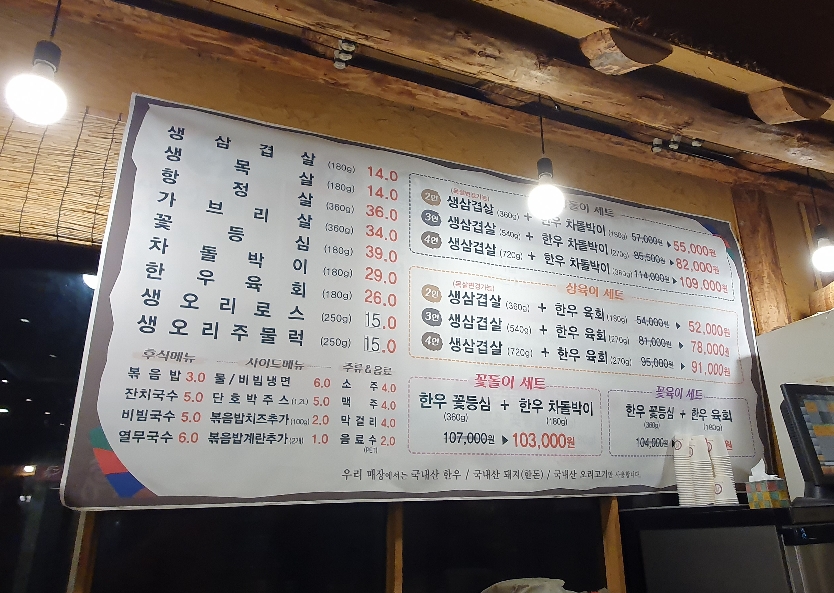 생삼겹살 (180g) 14.0
생목살 (180g) 14.0
항정살 (360g) 36.0
가브리살 (360g) 34.0
꽃등심 (180g) 39.0
차돌박이 (180g) 29.0
한우육회 (180g) 26.0
생오리로스 (250g) 15.0
생오리주물럭 (250g) 15.0
후식메뉴
볶음밥 3.0
잔치국수 5.0
비빔국수 5.0
열무국수 6.0
사이드메뉴
물/비빔냉면 6.0
단호박주스(1.2L) 5.0
볶음밥치즈추가(100g) 2.0
볶음밥계란추가(2개) 1.0
주류&음료
소주 4.0
맥주 4.0
막걸리 4.0
음료수 2.0
(PET)
돌이 세트
(목살변경가능)
2인 생삼겹살 (360g) + 한우 차돌박이 (180g) 57,000원 ▶ 55,000원
3인 생삼겹살 (540g) + 한우 차돌박이 (270g) 85,500원 ▶ 82,000원
4인 생삼겹살 (720g) + 한우 차돌박이 (360g) 114,000원 ▶ 109,000원
삼육이 세트
(목살변경가능)
2인 생삼겹살 (360g) + 한우 육회 (180g) 54,000원 ▶ 52,000원
3인 생삼겹살 (540g) + 한우 육회 (270g) 81,000원 ▶ 78,000원
4인 생삼겹살 (720g) + 한우 육회 (270g) 95,000원 ▶ 91,000원
꽃돌이 세트
한우 꽃등심 + 한우 차돌박이
(360g) (180g)
107,000원 ▶ 103,000원
꽃육이 세트
한우 꽃등심 + 한우 육회
(360g) (180g)
104,000원 원
우리 매장에서는 국내산 한우 / 국내산 돼지(한돈) / 국내산 오리고기만 사용합니다.